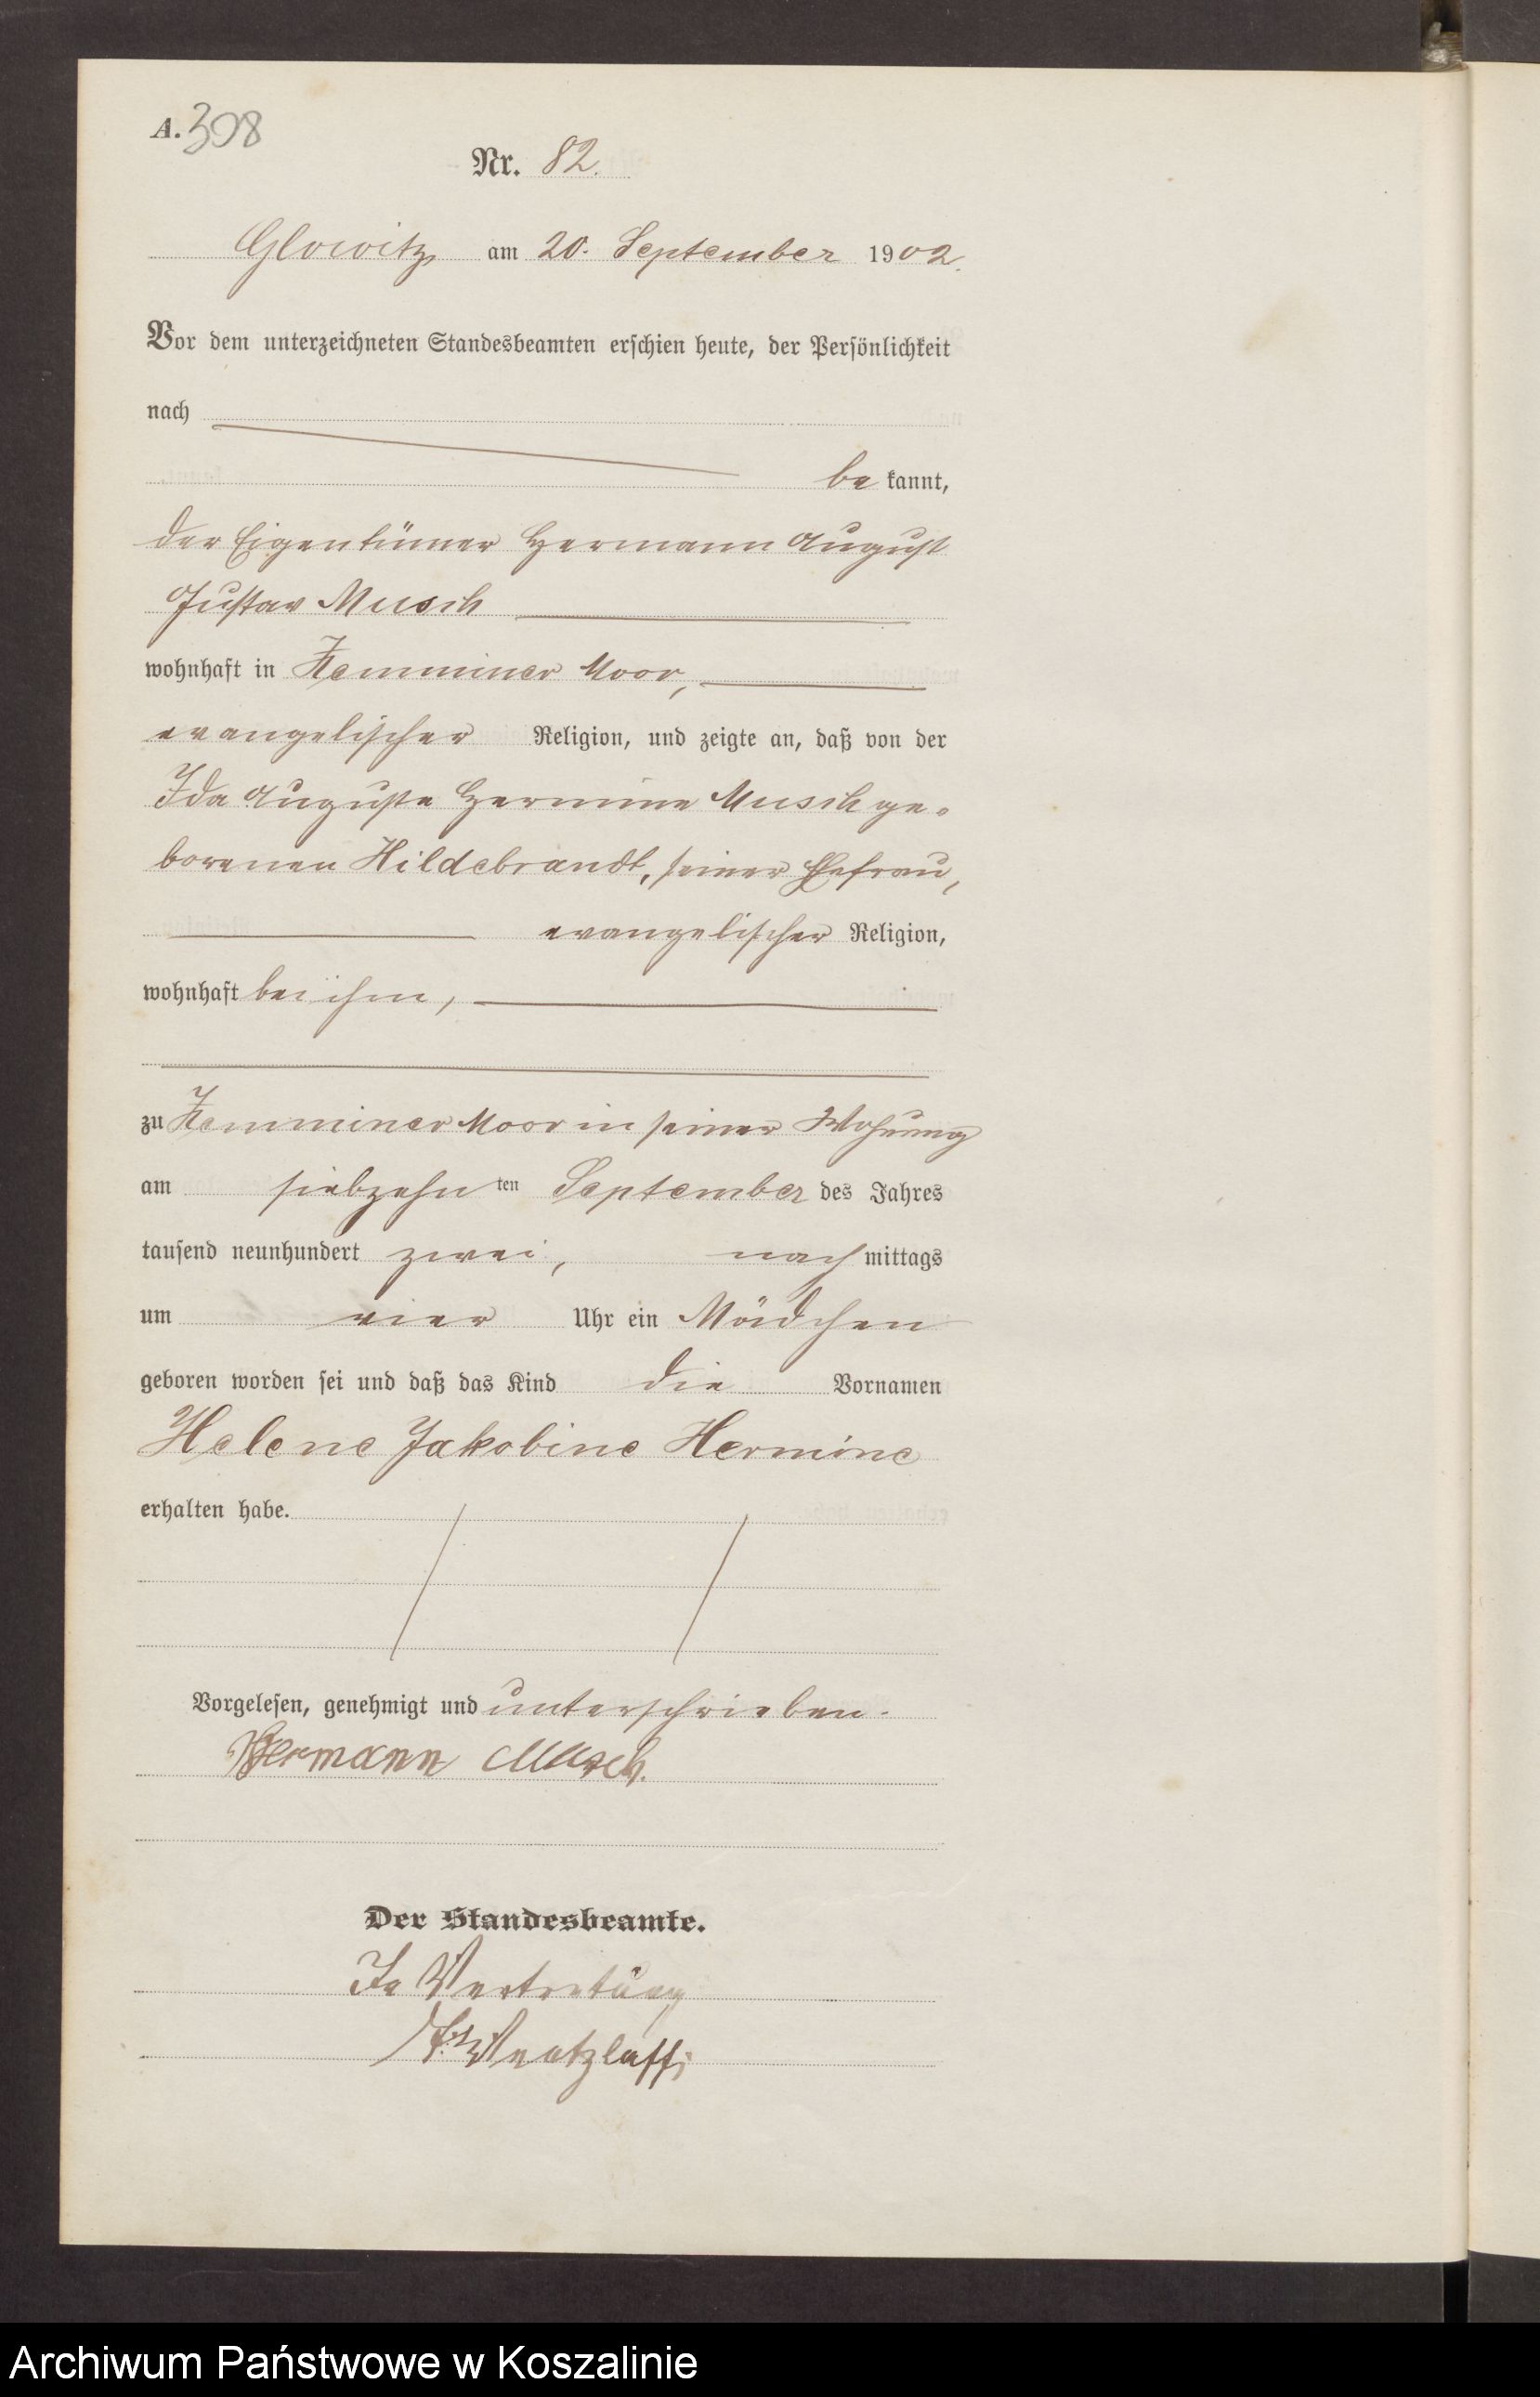 A. 398
Nr. 82.
Glowitz, am 20. September 1902.
Vor dem unterzeichneten Standesbeamten erschien heute, der Persönlichkeit
nach
be kannt,
der Eigentümer Hermann August
Gustav Musch
wohnhaft in Zemminer Moor,
evangelischer Religion, und zeigte an, daß von der
Ida Auguste Hermine Musch ge-
borenen Hildebrandt, seiner Ehefrau,
evangelischer Religion,
wohnhaft bei ihm,
zu Zemminer Moor in seiner Wohnung
am siebzehn ten September des Jahres
tausend neunhundert zwei, nach mittags
um vier Uhr ein Mädchen
geboren worden sei und daß das Kind die Vornamen
Helene Jakobine Hermine
erhalten habe.
Vorgelesen, genehmigt und unterschrieben.
Hermann Musch.
Der Standesbeamte.
In Vertretung
Archiwum Państwowe w Koszalinie